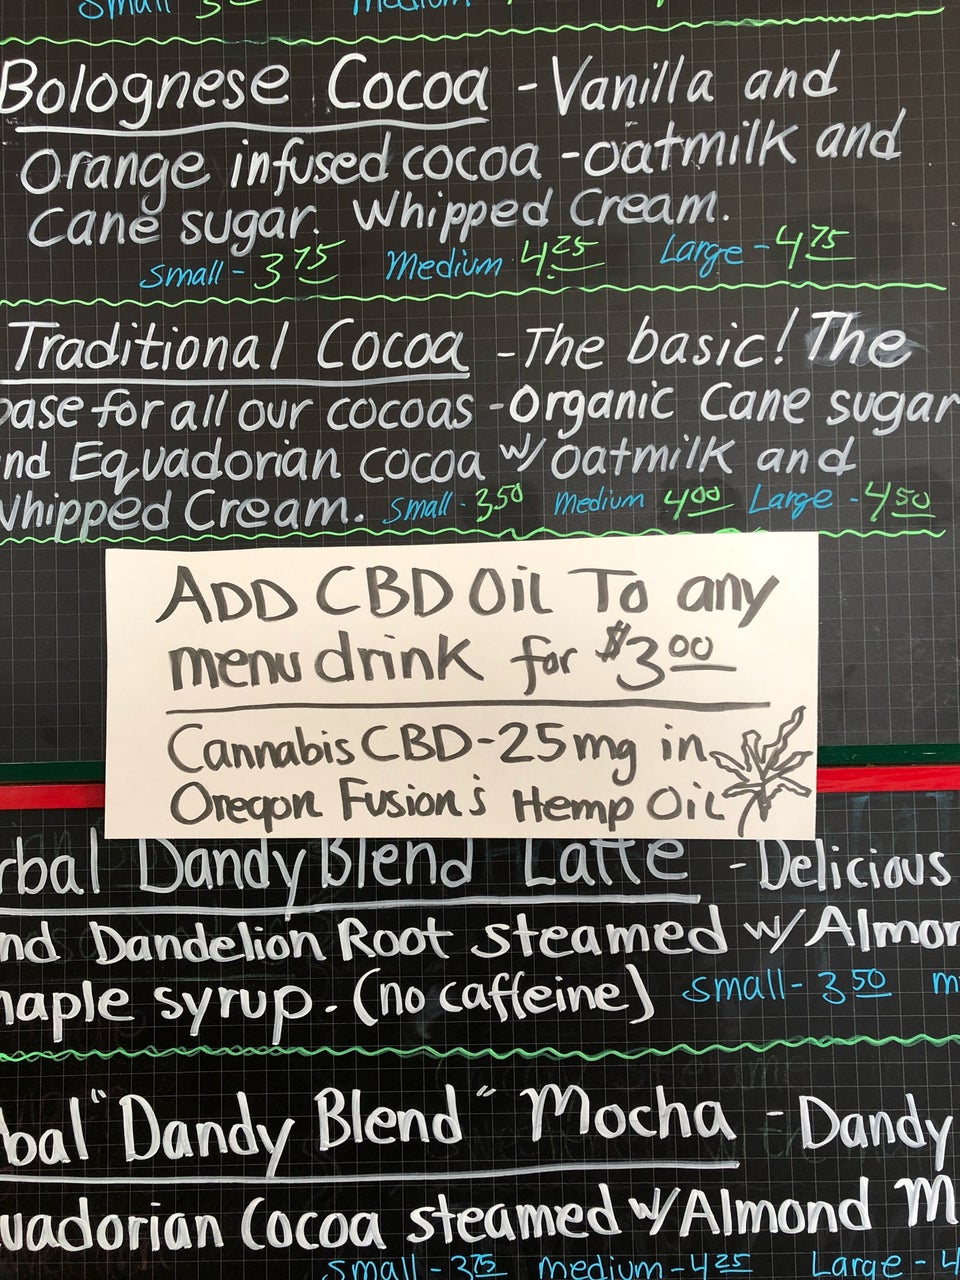 Small
Bolognese Cocoa - Vanilla and
Orange infused cocoa - oatmilk and
Cane sugar. Whipped Cream.
Small - 3.75 Medium 4.25 Large - 4.75
Traditional Cocoa - The basic! The
base for all our cocoas - Organic Cane sugar
nd Equadorian cocoa w/ oatmilk and
Whipped Cream. Small - 3.50 Medium 4.00 Large - 4.50
ADD CBD Oil To any
menu drink for $3.00
Cannabis CBD - 25mg in
Oregon Fusion's Hemp Oil
rbal Dandy Blend Latte - Delicious
nd Dandelion Root steamed w/ Almon
maple syrup. (no caffeine) small - 3.50 m
bal "Dandy Blend" Mocha - Dandy
uadorian Cocoa steamed w/ Almond M
small - 3.75 medium - 4.25 Large - 4